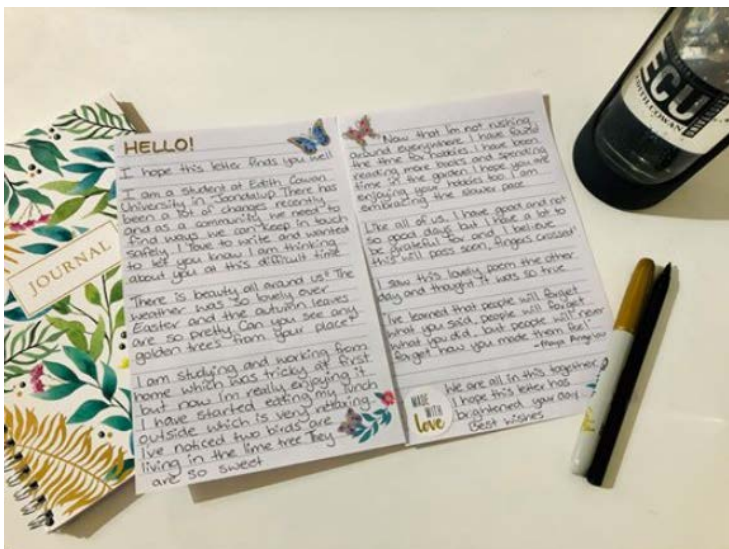 JOURNAL
HELLO!
I hope this letter finds you well
I am a student at Edith Cowan
University in Joondalup. There has
been a lot of changes recently
and as a community we need to
find ways we can keep in touch
safely. I love to write and wanted
to let you know I am thinking
about you at this difficult time.
There is beauty all around us!! The
weather was so lovely over
Easter and the autumn leaves
are so pretty. Can you see any
golden trees from your place?
I am studying and working from
home which was tricky at first
but now I'm really enjoying it.
I have started eating my lunch
outside which is very relaxing
I've noticed two birds are
living in the lime tree They
are so sweet
Now that I'm not rushing
around everywhere I have found
the time for hobbies. I have been
reading more books and spending
time in the garden. I hope you are
enjoying your hobbies too. I am
embracing the slower pace
Like all of us, I have good and not
so good days but I have a lot to
be grateful for and I believe
this will pass soon, fingers crossed!
I saw this lovely poem the other
day and thought it was so true
"I've learned that people will forget
what you said, people will forget
what you did, but people will never
forget how you made them feel."
-Maya Angelou
MADE
WITH
love
We are all in this together,
I hope this letter has
brightened your day
Best wishes
ECU
EDITH COWAN